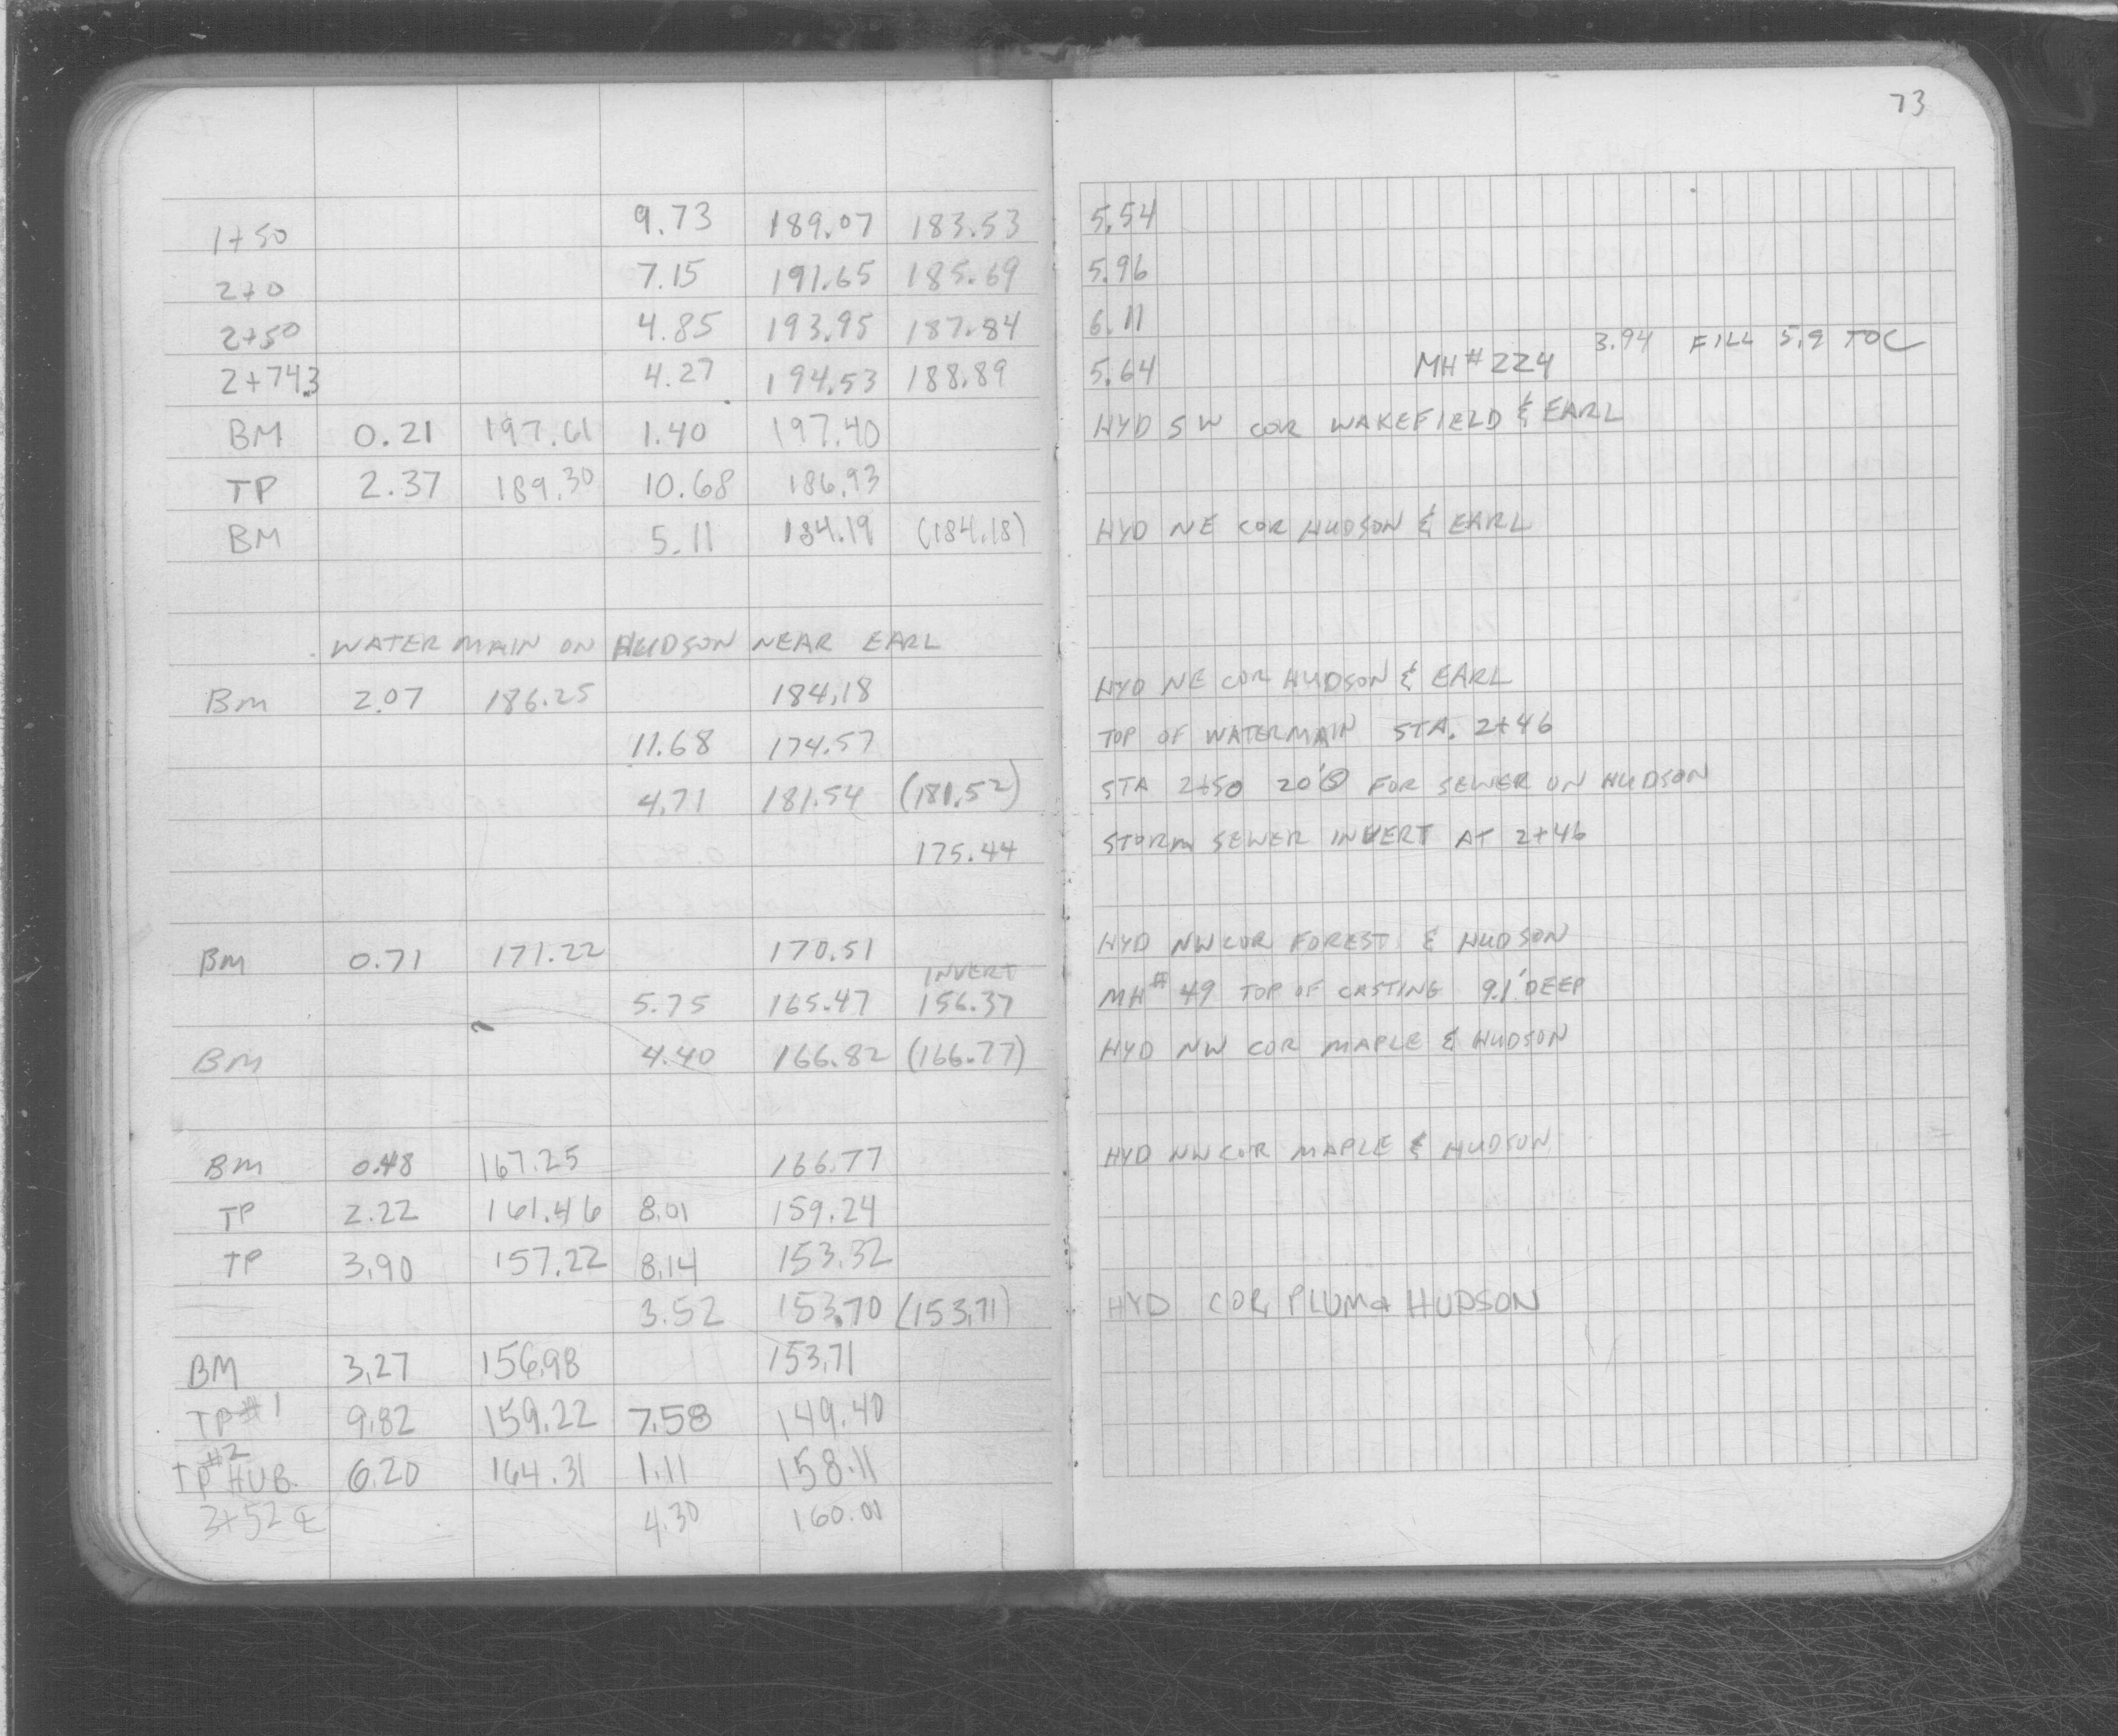 73
1+50 9.73 189.07 183.53 5.54
2+0 7.15 191.65 185.69 5.96
2+50 4.85 193.95 187.84 6.11
3.94 FILL 5.9 TOC
2+74.3 4.27 194.53 188.89 5.64 MH #224
BM 0.21 197.61 1.40 197.40 HYD SW COR WAKEFIELD & EARL
TP 2.37 189.30 10.68 186.93
BM 5.11 184.19 (184.18) HYD NE COR HUDSON & EARL
WATER MAIN ON HUDSON NEAR EARL
BM 2.07 186.25 184.18 HYD NE COR HUDSON & EARL
11.68 174.57 TOP OF WATERMAIN STA. 2+46
4.71 181.54 (181.52) STA 2+50 20' Ⓢ FOR SEWER ON HUDSON
175.44 STORM SEWER INVERT AT 2+46
BM 0.71 171.22 170.51 HYD NW COR FOREST & HUDSON
INVERT
5.75 165.47 156.37 MH # 49 TOP OF CASTING 9.1' DEEP
BM 4.40 166.82 (166.77) HYD NW COR MAPLE & HUDSON
BM 0.48 167.25 166.77 HYD NW COR MAPLE & HUDSON
TP 2.22 161.46 8.01 159.24
TP 3.90 157.22 8.14 153.32
3.52 153.70 (153.71) HYD COR PLUM & HUDSON
BM 3.27 156.98 153.71
TP#1 9.82 159.22 7.58 149.40
TP #2 HUB. 6.20 164.31 1.11 158.11
3+52 ℄ 4.30 160.01